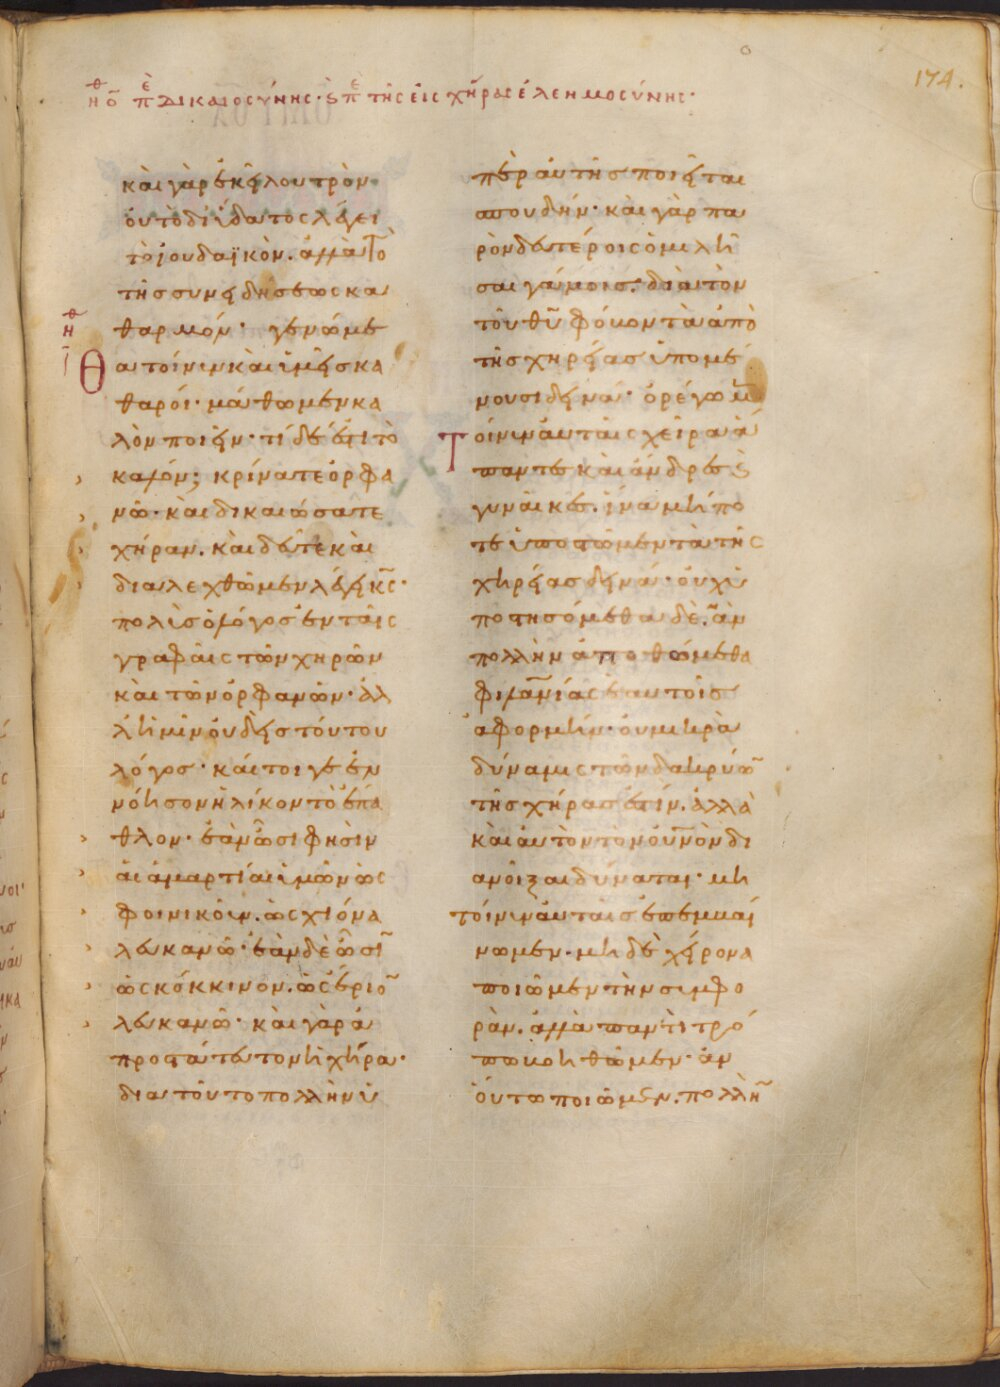 174.
ἠθ ὁ πε δικαιοσύνης· ϛ πε τῆς εἰς χήρας ἐλεημοσύνης·
καὶ γὰρ ἐκεῖ λουτρὸν
οὐ τὸ δι' ὕδατος λέγει
τὸ ἰουδαϊκὸν. ἀλλὰ τὸ
τῆς συνειδήσεως κα
θαρμόν· γενώμε
θα τοίνυν καὶ ἡμεῖς κα
θαροί· μάθωμεν κα
λὸν ποιεῖν· τί δέ ἐστι τὸ
καλόν; κρίνατε ὀρφα
νῶ· καὶ δικαιώσατε
χήραν. καὶ δεῦτε καὶ
διαλεχθῶμεν λέγει κς·
πολὺς ὁ λόγος ἐν ταῖς
γραφαῖς τῶν χηρῶν
καὶ τῶν ὀρφανῶν· ἀλ
λ' ἡμῖν οὐδεὶς τούτου
λόγος· καίτοιγε ἐν
νόησον ἡλίκον τὸ ἔπα
θλον· ἐὰν ὦσι φησὶν
αἱ ἁμαρτίαι ὑμῶν ὡς
φοινικοῦν. ὡς χιόνα
λευκανῶ· ἐὰν δὲ ὦσιν
ὡς κόκκινον. ὡς ἔριον
λευκανῶ· καὶ γὰρ ἀ
προστάτευτον ἡ χήρα·
δια τοῦτο πολλὴν ὑ
πὲρ αὐτῆς ποιεῖται
σπουδήν· καὶ γὰρ πα
ρὸν δευτέροις ὁμιλῆ
σαι γάμοις· διὰ τὸν
τοῦ θυ φόβον τὰ ἀπὸ
τῆς χηρείας ὑπομέ
νουσι δεινά· ὀρέγωμεν
τοίνυν αὐταῖς χεῖρα ἅ
παντες καὶ ἄνδρες ϛ
γυναῖκες. ἵνα μή πο
τε ὑποστῶμεν τὰ τῆς
χηρείας δεινά· οὐχ ὑ
ποστησόμεθα δὲ. ἂν
πολλὴν ἀποθώμεθα
φιλανίας ἑαυτοῖς
ἀφορμήν· οὐ μικρὰ
δύναμις τῶν δακρύων
τῆς χήρας ἐστίν. ἀλλὰ
καὶ αὐτὸν τὸν οὐνὸν δι
ανοῖξαι δύναται· μὴ
τοίνυν αὐταῖς ἐπεμβαί
νωμεν. μὴ δὲ χείρονα
ποιῶμεν τὴν συμφο
ρὰν. ἀλλὰ παντὶ τρό
πω βοηθῶμεν· ἂν
οὕτω ποιῶμεν. πολλὴν